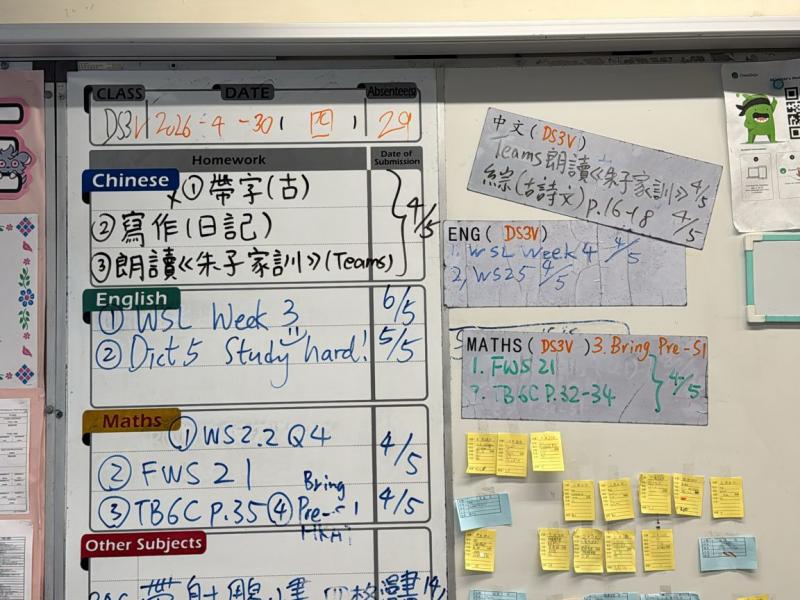 CLASS DATE Absentee(s)
DS3V 2026-4-30 (四) 29
Homework Date of Submission
Chinese
x ① 帶字(古)
② 寫作(日記)
③ 朗讀《朱子家訓》(Teams)
4/5
English
① WSL Week 3 6/5
② Dict 5 Study hard! 5/5
Maths
① WS2.2 Q4 4/5
② FWS 21
③ TB6C P.35 ④ Bring Pre-S1 4/5
Other Subjects
中文(DS3V)
Teams朗讀《朱子家訓》 4/5
綜(古詩文) p.16-18 4/5
ENG( DS3V)
1. WSL Week 4 4/5
2, WS25 4/5
MATHS( DS3V ) 3. Bring Pre-S1
1. FWS 21
2. TB6C P.32-34
4/5